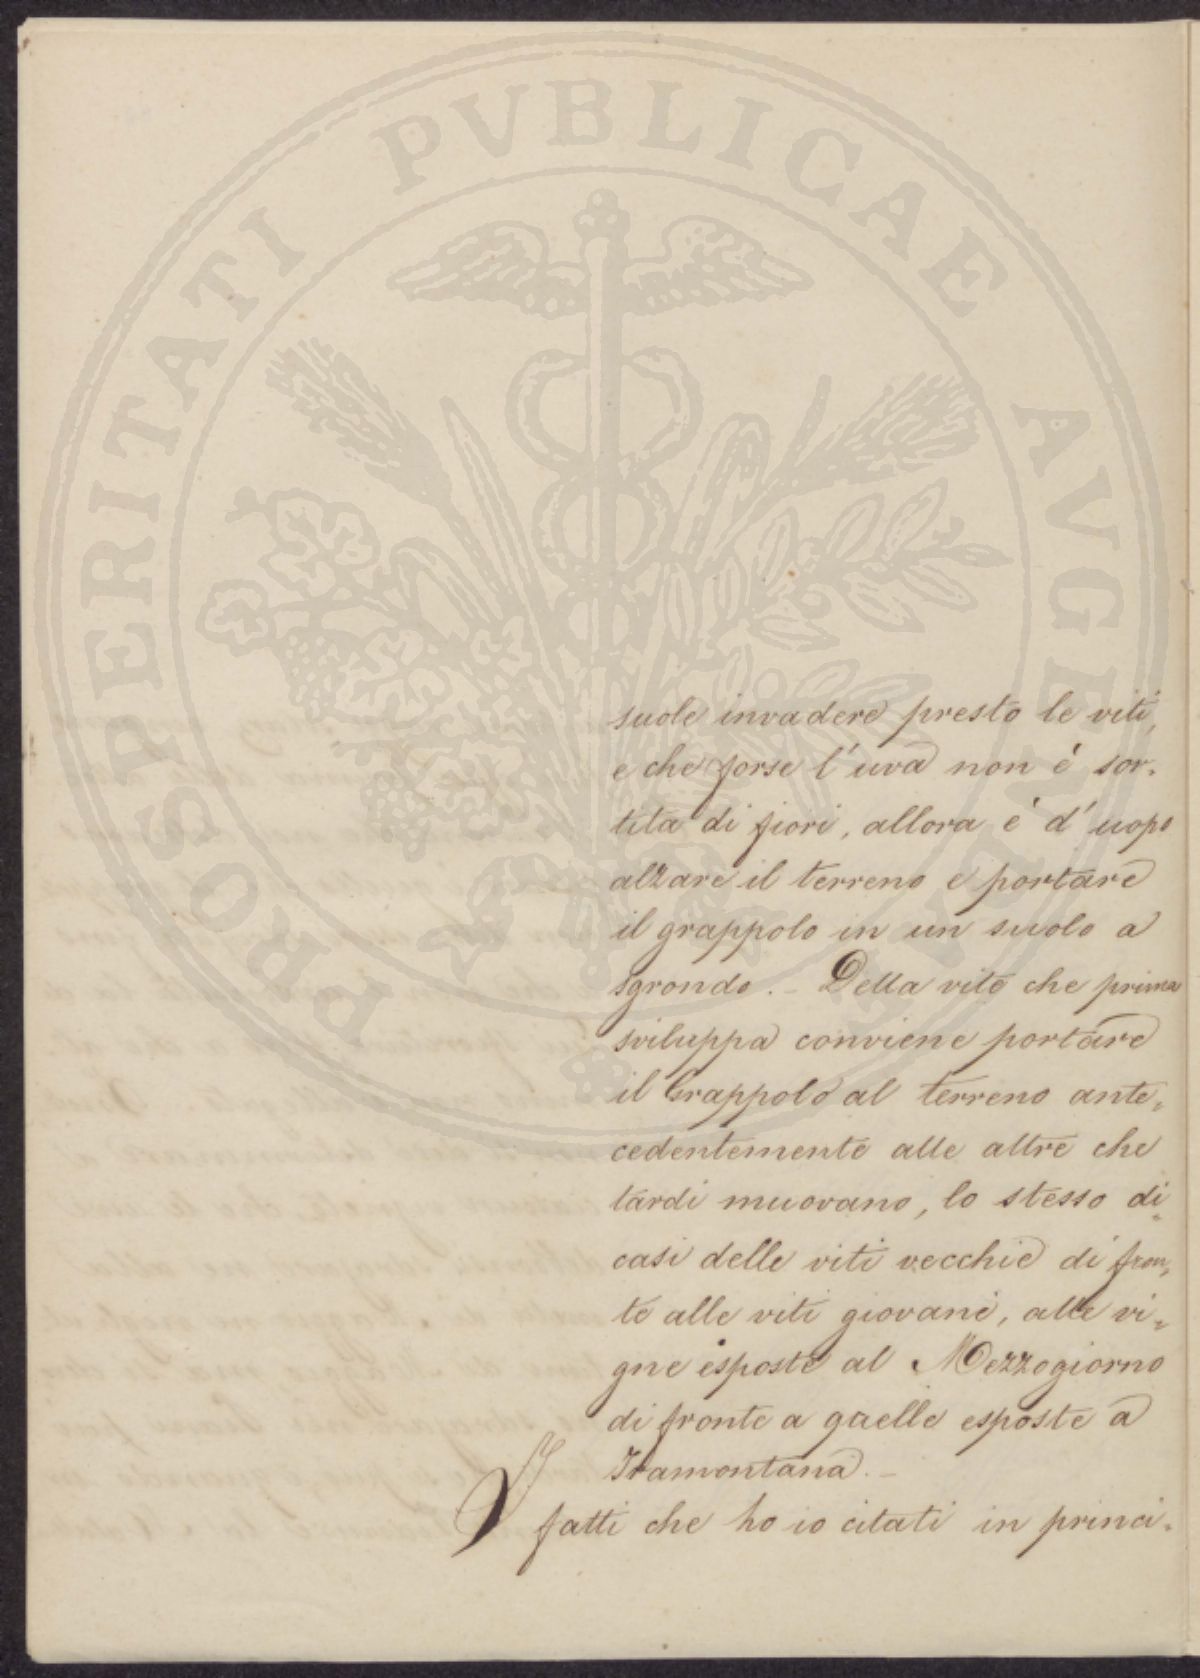 PROSPERITATI PVBLICAE AVGENDAE
suole invadere presto le viti,
e che forse l'uva non é sor=
tita di fiori, allora é d'uopo
alzare il terreno e portare
il grappolo in un suolo a
sgrondo. - Della vite che prima
sviluppa conviene portare
il Grappolo al terreno ante=
cedentemente alle altre che
tardi muovano, lo stesso di=
casi delle viti vecchie di fron=
te alle viti giovani, alle vi=
gne esposte al Mezzogiorno
di fronte a quelle esposte a
Tramontana. -
I fatti che ho io citati in princi=